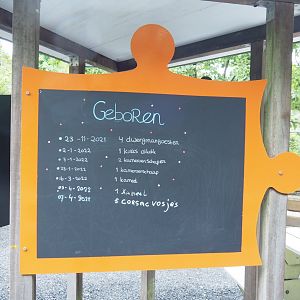 Geboren
23-11-2021 4 dwergmangoesten
2-1-2022 1 kuifs
7-1-2022 2 kameroenschapen
23-1-2022 1 kameroenschaap
16-3-2022 1 kameel
1 kameel
07-4-2021 5 corsac vosjes